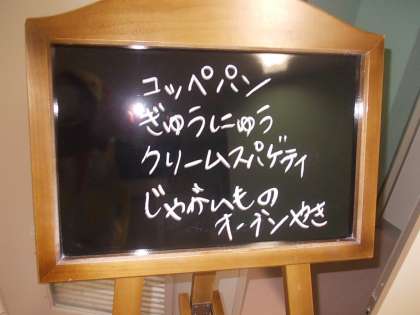 コッペパン
ぎゅうにゅう
クリームスパゲティ
じゃがいもの
オーブンやき